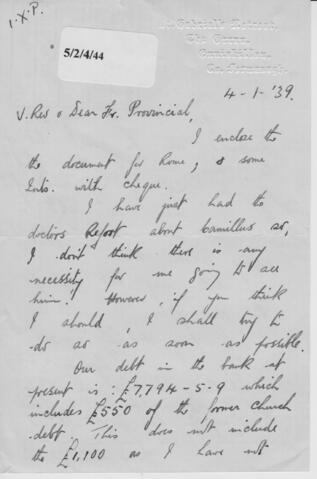 I.X.P.
5/2/4/44
St. Gabriel's Retreat,
The Graan,
Enniskillen,
Co. Fermanagh.
4-1-'39.
V. Rev & Dear Fr. Provincial,
I enclose the
the document for Rome, & some
Ints. with cheque.
I have just had the
doctors Report about Camillus so,
I don't think there is any
necessity for me going to see
him. However, if you think
I should, I shall try to
do so as soon as possible.
Our debt in the bank at
present is: £7,794-5-9 which
includes £550 of the former church
debt. This does not include
the £1,100 as I have not